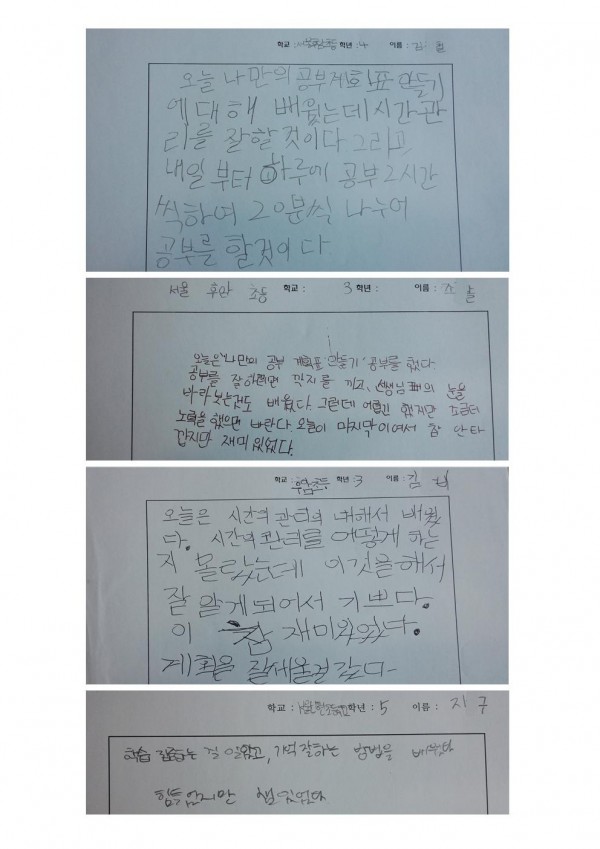 학교 : 학년 : 4 이름 : 김
오늘 나만의 공부계획표 만들기
에 대해 배웠는데 시간관
리를 잘할 것이다 그리고
내일 부터 하루에 공부 2시간
씩하여 20분씩 나누어
공부를 할것이다.
서울 초등 학교 : 3 학년 : 이름 : 조
오늘은 '나만의 공부 계획표 만들기' 공부를 했다.
공부를 잘하려면 깍지를 끼고, 선생님 눈을
바라 보는것도 배웠다. 그런데 했지만 조금더
노력을 했으면 바란다. 오늘이 마지막이여서 참 안타
깝지만 재미있었다.
학교 : 학년 : 3 이름 : 김
오늘은 시간의 관리의 대해서 배웠
다. 시간의 관리를 어떻게 하는
지 몰랐는데 이것을 해서
잘 알게되어서 기쁘다.
이 참 재미있었다.
계획을 잘세울것 같다-
학교 : 학년 : 5 이름 : 지 구
학습 걸 알았고, 기억 잘하는 방법을 배웠다
힘들었지만 재밌었다